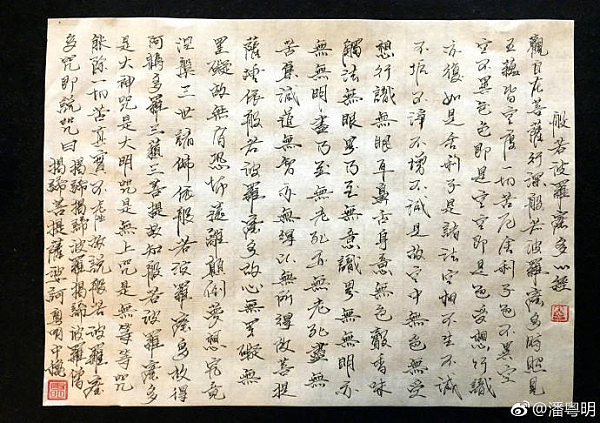 般若波羅蜜多心經
觀自在菩薩行深般若波羅蜜多時照見
五蘊皆空度一切苦厄舍利子色不異空
空不異色色即是空空即是色受想行識
亦復如是舍利子是諸法空相不生不滅
不垢不淨不增不減是故空中無色無受
想行識無眼耳鼻舌身意無色聲香味
觸法無眼界乃至無意識界無無明亦
無無明盡乃至無老死亦無老死盡無
苦集滅道無智亦無得以無所得故菩提
薩埵依般若波羅蜜多故心無罣礙無
罣礙故無有恐怖遠離顛倒夢想究竟
涅槃三世諸佛依般若波羅蜜多故得
阿耨多羅三藐三菩提故知般若波羅蜜多
是大神咒是大明咒是無上咒是無等等咒
能除一切苦真實不虛故說般若波羅蜜
多咒即說咒曰 揭諦揭諦波羅揭諦波羅僧
揭諦菩提薩婆訶 粵明中
@潘粤明